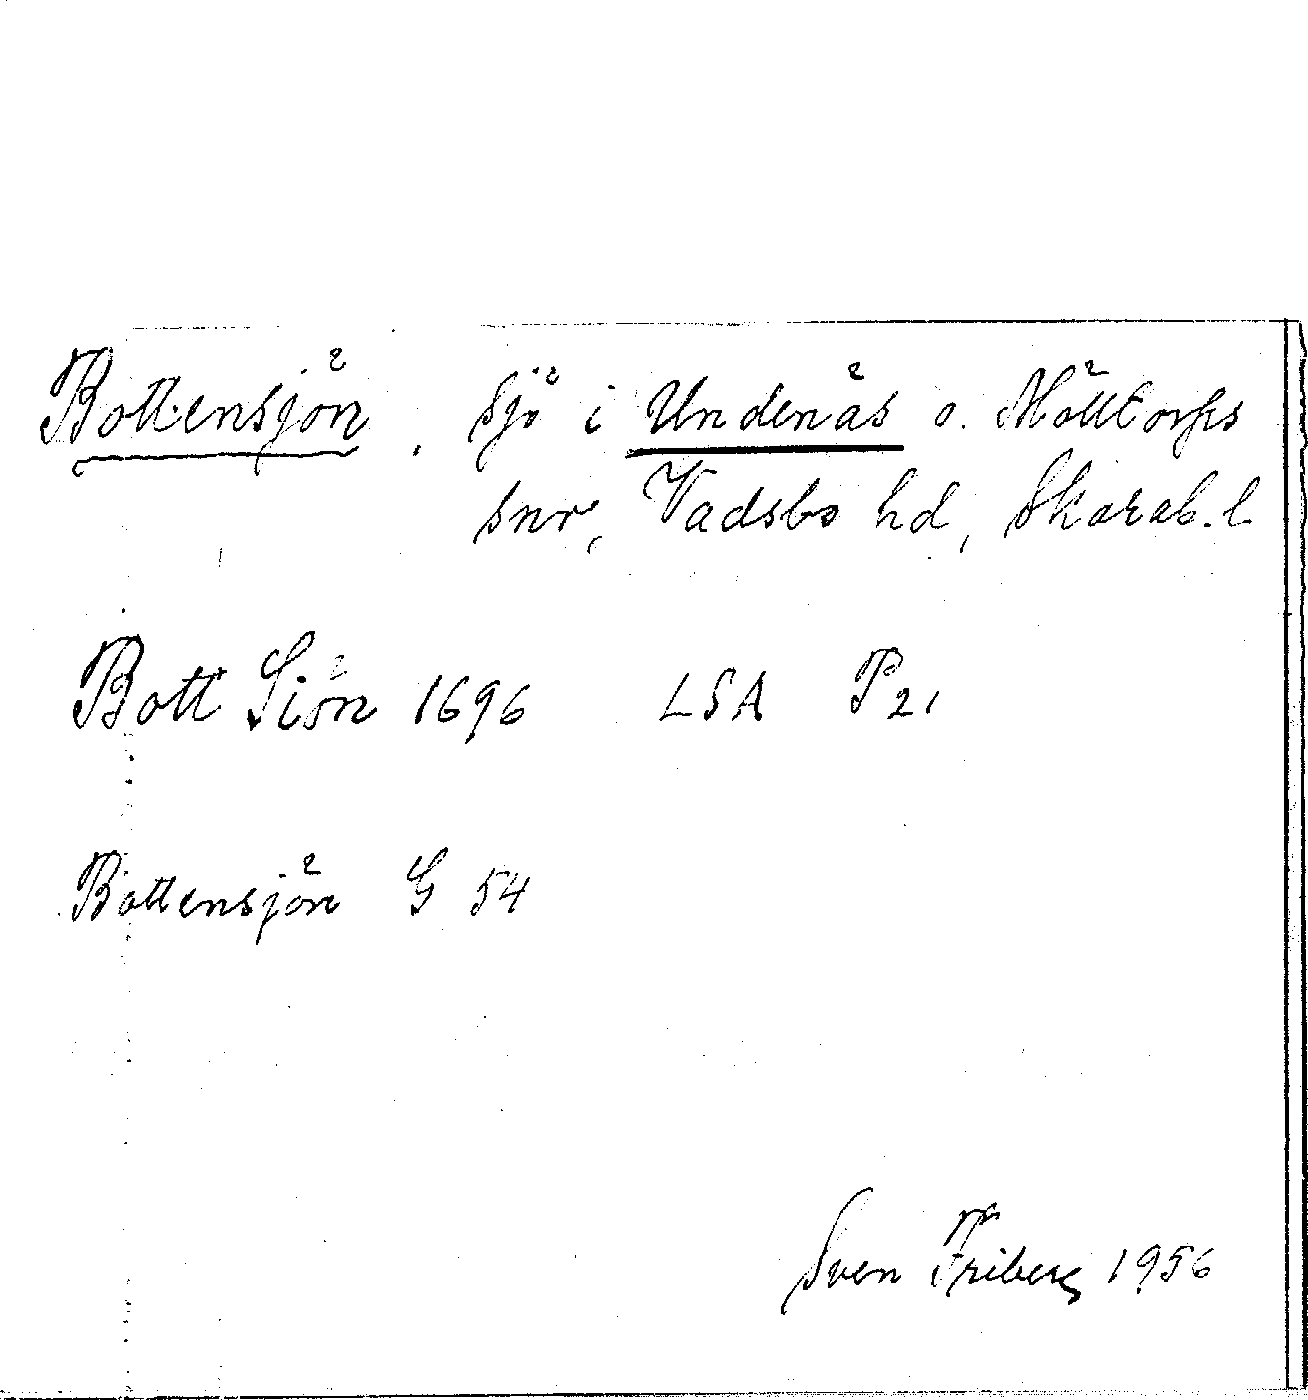 Bottensjön, sjö i Undenäs o. Mölltorps
snr, Vadsbo hd, Skarab. l
Bott Siön 1696 LSA P21
Bottensjön G 54
Sven Friberg 1956